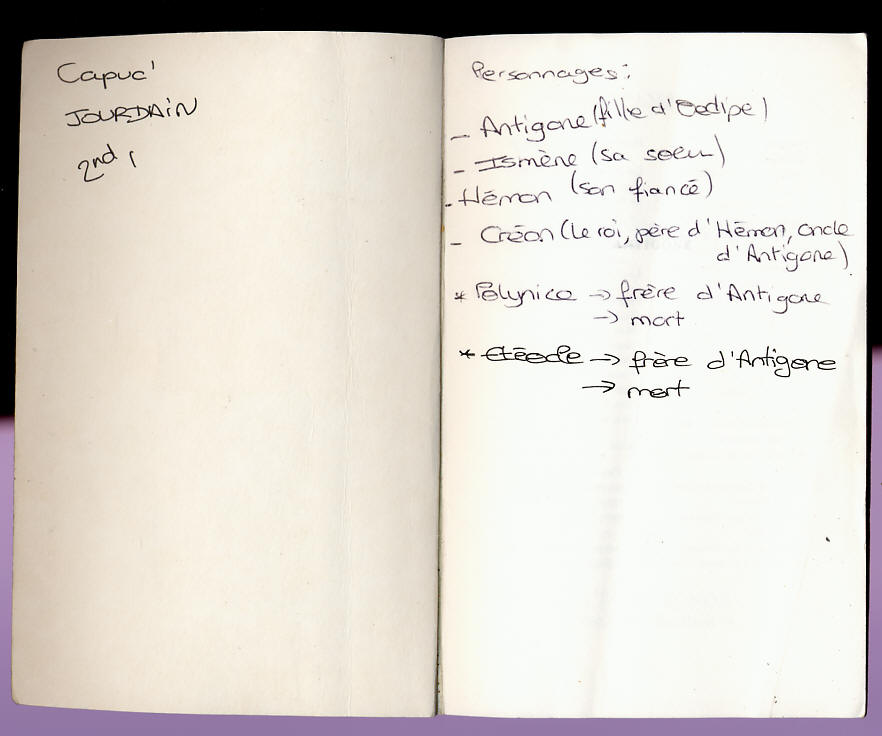 Capuc'
JOURDAIN
2nd 1
Personnages:
- Antigone (fille d'Oedipe)
- Ismène (sa soeur)
- Hémon (son fiancé)
- Créon (le roi, père d'Hémon, oncle
d'Antigone)
* Polynice → frère d'Antigone
→ mort
* Etéocle → frère d'Antigone
→ mort